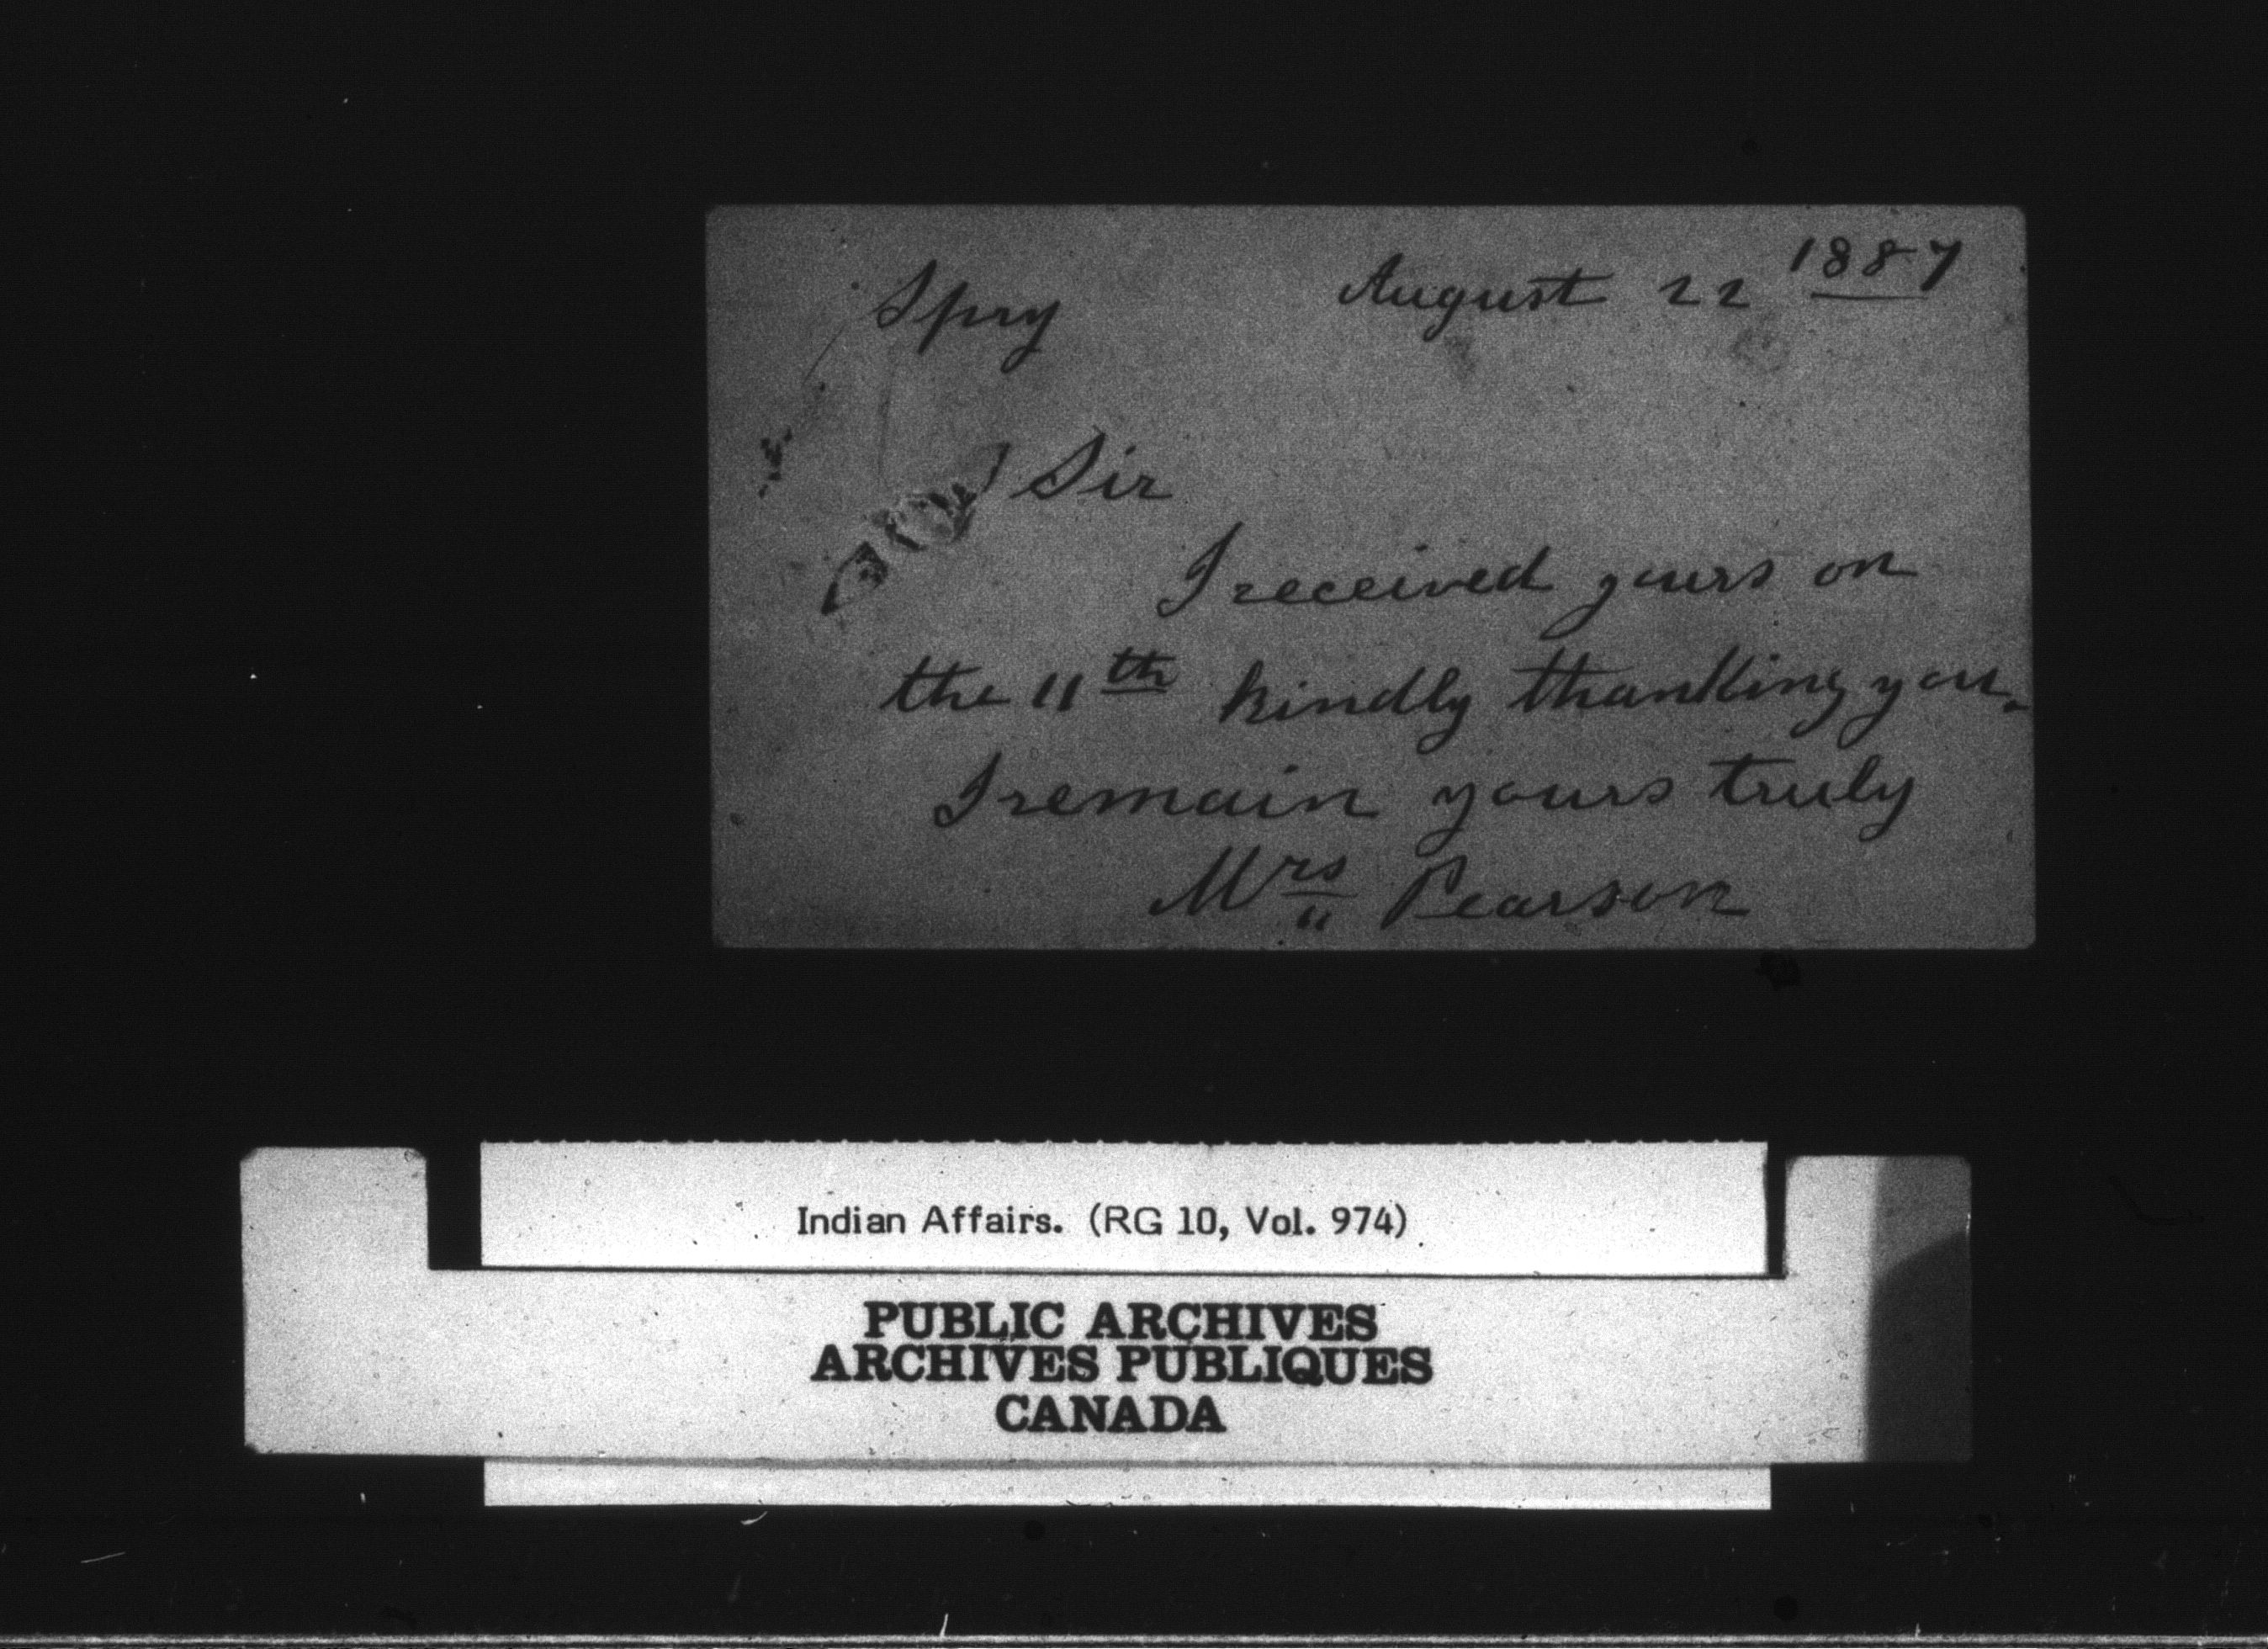 Spry August 22 1887
Sir
I received yours on
the 11th kindly thanking you.
I remain yours truly
Mrs Pearson
Indian Affairs. (RG 10, Vol. 974)
PUBLIC ARCHIVES
ARCHIVES PUBLIQUES
CANADA